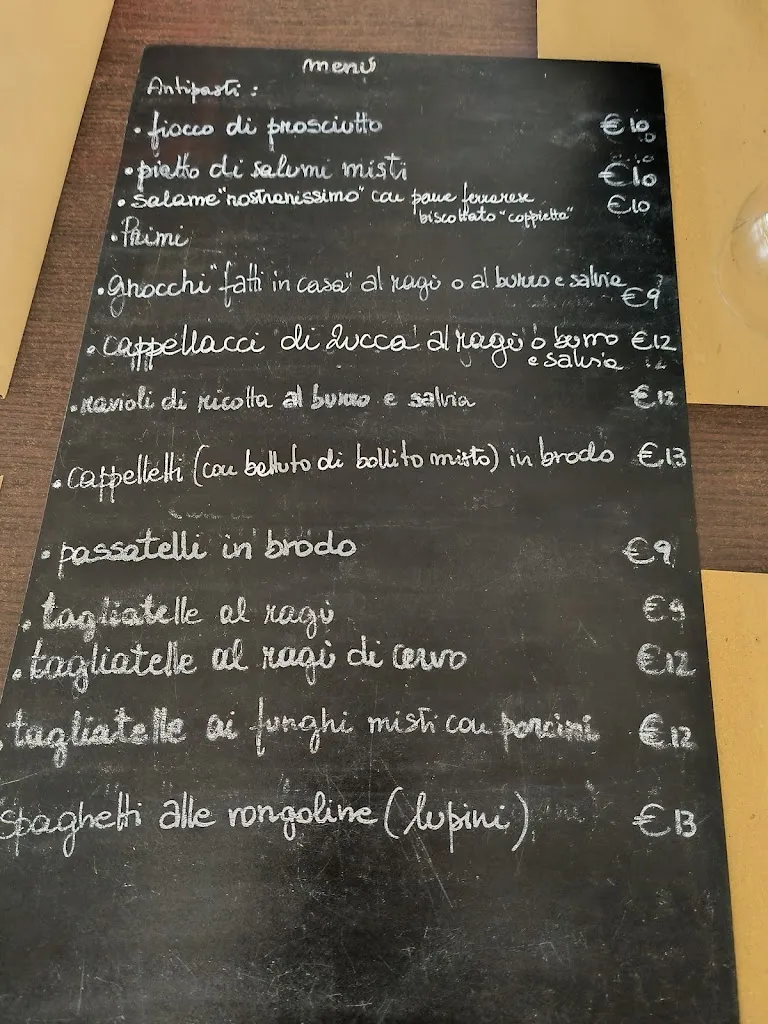 menú
Antipasti :
• fiocco di prosciutto €10
• piatto di salumi misti €10
• salame "nostranissimo" con pane ferrarese €10
biscottato "coppietta"
• Primi
• gnocchi "fatti in casa" al ragù o al burro e salvia
€9
• cappellacci di zucca al ragù o burro €12
e salvia
• ravioli di ricotta al burro e salvia €12
• cappelletti (con battuto di bollito misto) in brodo €13
• passatelli in brodo €9
• tagliatelle al ragù €9
• tagliatelle al ragù di cervo €12
• tagliatelle ai funghi misti con porcini €12
Spaghetti alle vongoline (lupini) €13